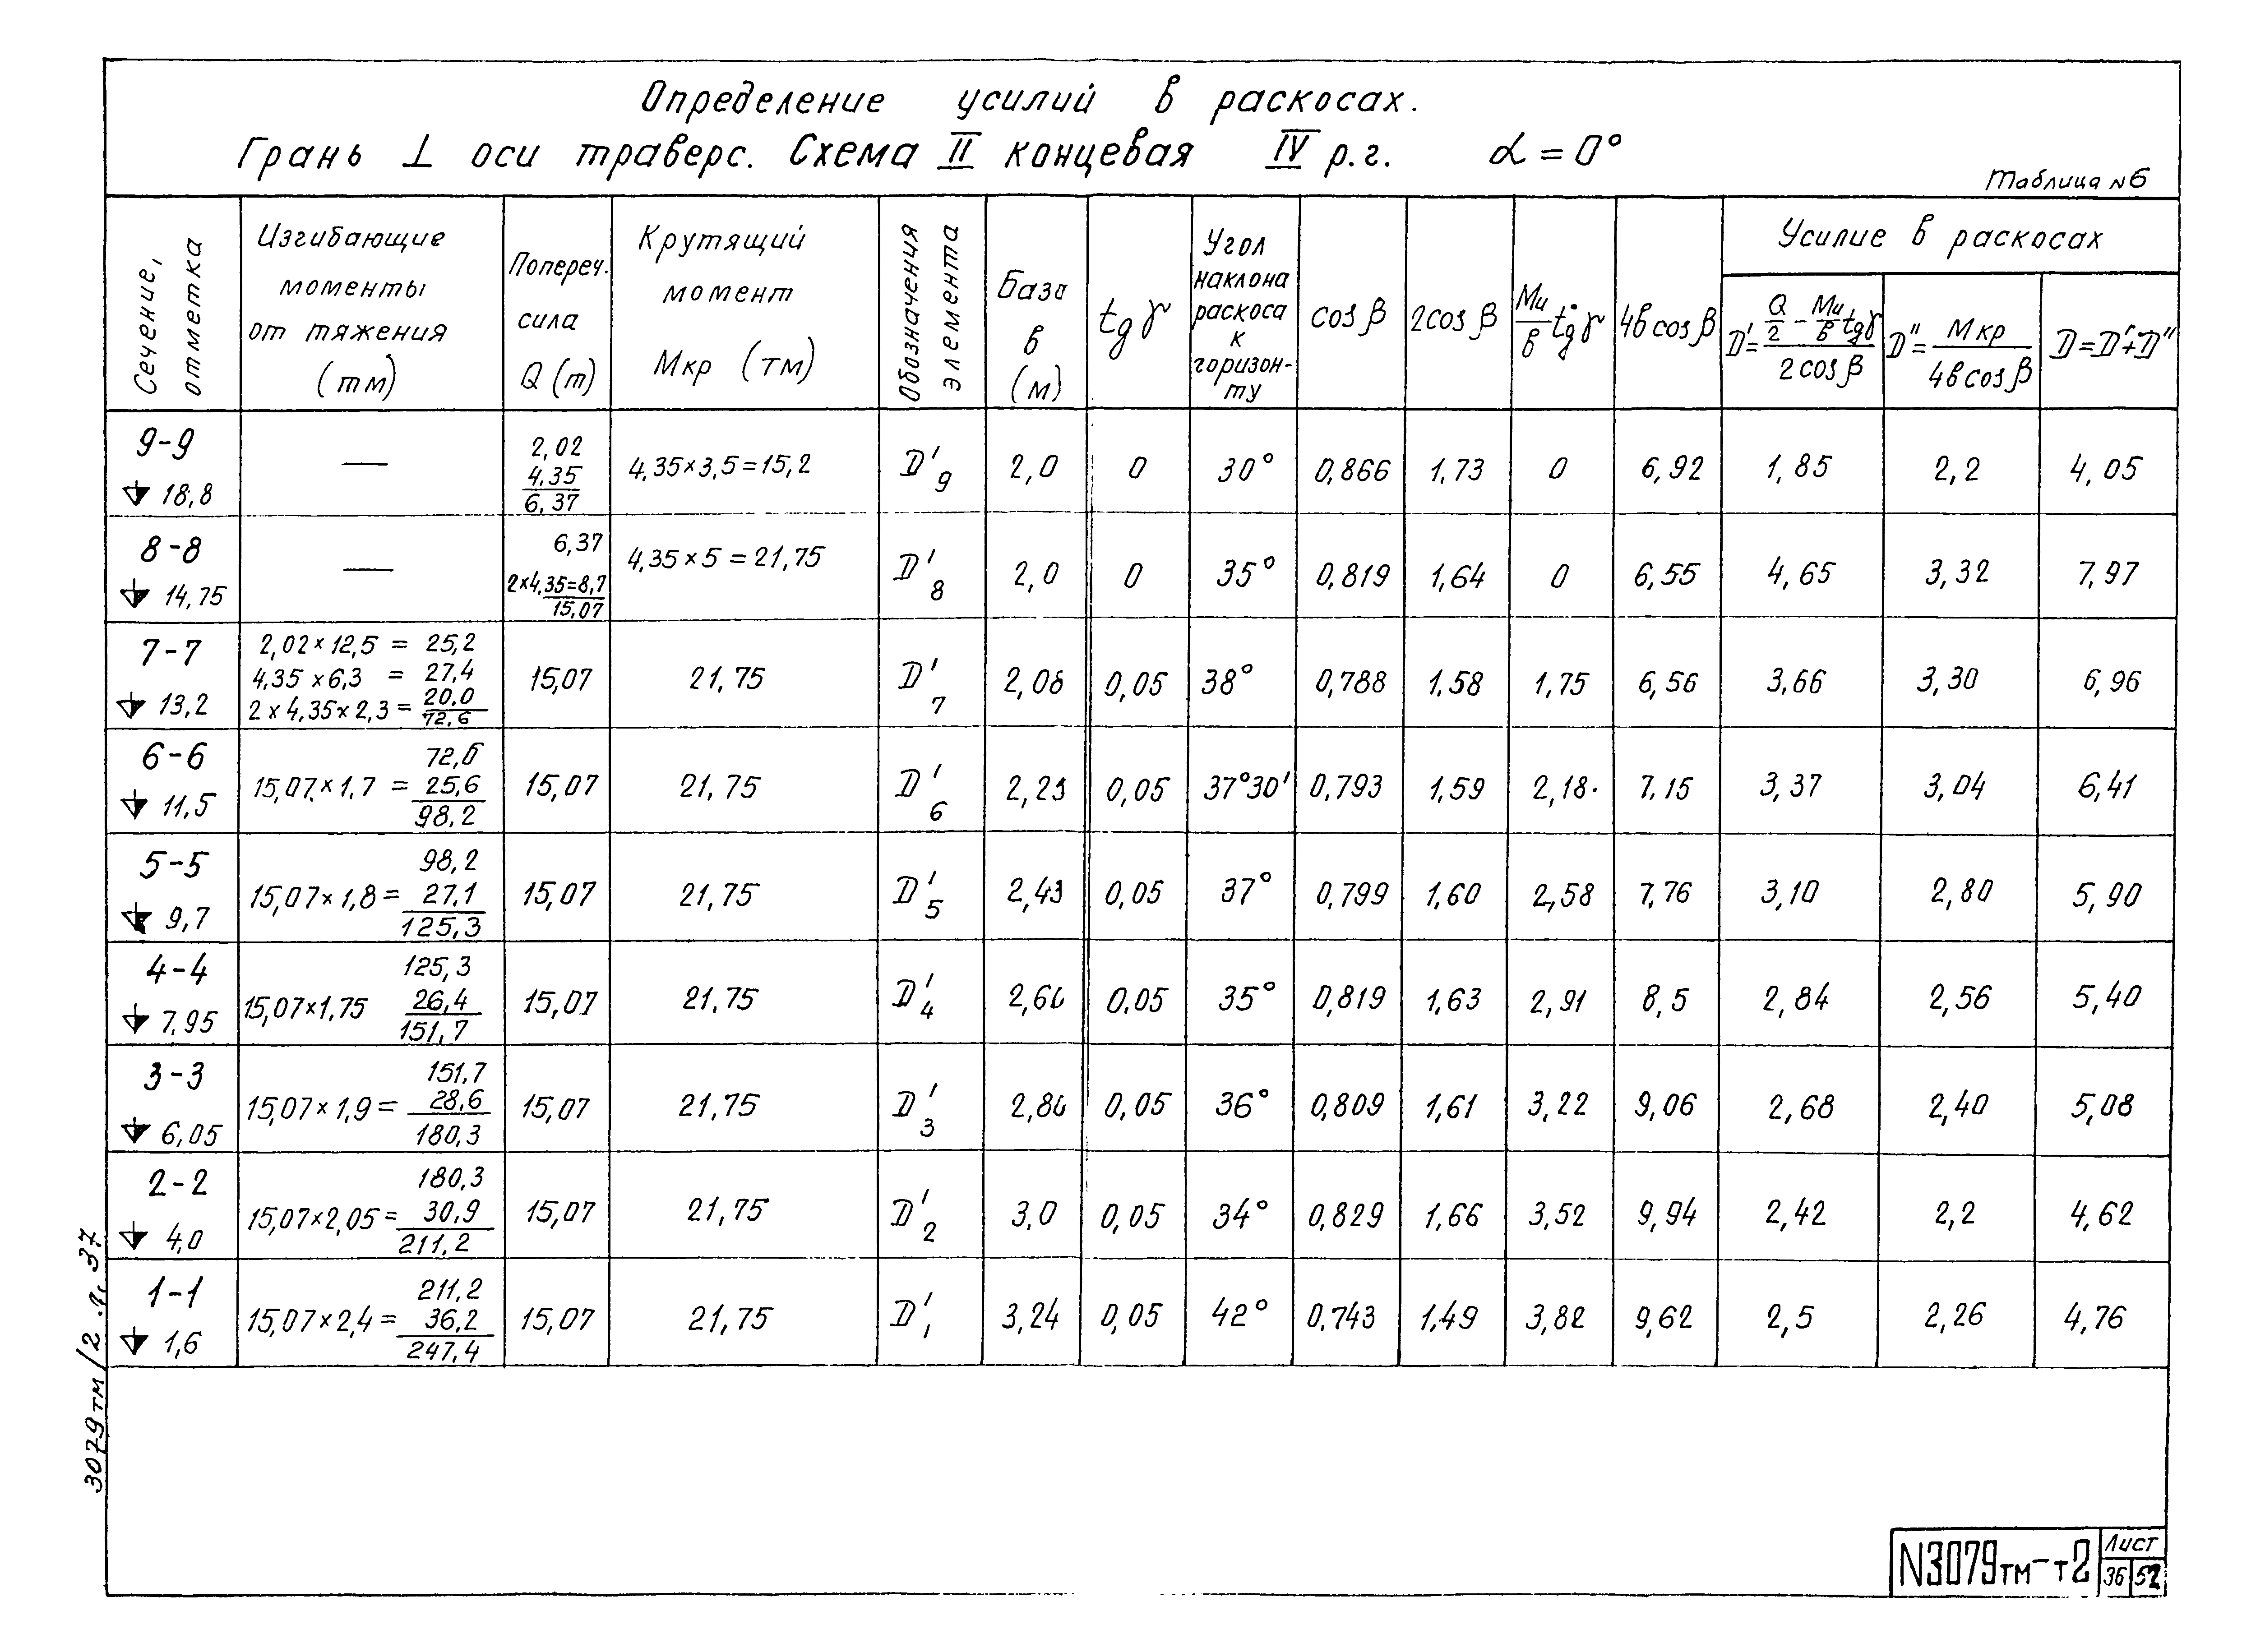 Определение усилий в раскосах.
Грань ⊥ оси траверс. Схема II концевая IV р.г. α = 0°
Таблица N6
Сечение, отметка
Изгибающие моменты от тяжения (тм)
Попереч. сила Q (т)
Крутящий момент Мкр (тм)
Обозначения элемента
База в (м)
tg γ
Угол наклона раскоса к горизонту
cos β
2cos β
Ми/в tg γ
4в cos β
Усилие в раскосах
D' = (Q/2 - Ми/в tg γ) / 2 cos β
D" = Мкр / 4в cos β
D = D' + D"
9-9 18,8 — 2,02 4,35 6,37 4,35×3,5=15,2 D'9 2,0 0 30° 0,866 1,73 0 6,92 1,85 2,2 4,05
8-8 14,75 — 6,37 2×4,35=8,7 15,07 4,35×5=21,75 D'8 2,0 0 35° 0,819 1,64 0 6,55 4,65 3,32 7,97
7-7 13,2 2,02×12,5 = 25,2 4,35×6,3 = 27,4 2×4,35×2,3 = 20,0 72,6 15,07 21,75 D'7 2,08 0,05 38° 0,788 1,58 1,75 6,56 3,66 3,30 6,96
6-6 11,5 72,6 15,07×1,7 = 25,6 98,2 15,07 21,75 D'6 2,23 0,05 37°30' 0,793 1,59 2,18 7,15 3,37 3,04 6,41
5-5 9,7 98,2 15,07×1,8 = 27,1 125,3 15,07 21,75 D'5 2,43 0,05 37° 0,799 1,60 2,58 7,76 3,10 2,80 5,90
4-4 7,95 125,3 15,07×1,75 26,4 151,7 15,07 21,75 D'4 2,60 0,05 35° 0,819 1,63 2,91 8,5 2,84 2,56 5,40
3-3 6,05 151,7 15,07×1,9 = 28,6 180,3 15,07 21,75 D'3 2,80 0,05 36° 0,809 1,61 3,22 9,06 2,68 2,40 5,08
2-2 4,0 180,3 15,07×2,05 = 30,9 211,2 15,07 21,75 D'2 3,0 0,05 34° 0,829 1,66 3,52 9,94 2,42 2,2 4,62
1-1 1,6 211,2 15,07×2,4 = 36,2 247,4 15,07 21,75 D'1 3,24 0,05 42° 0,743 1,49 3,82 9,62 2,5 2,26 4,76
3079тм/2 л. 37
N3079тм-т2
Лист
36 52